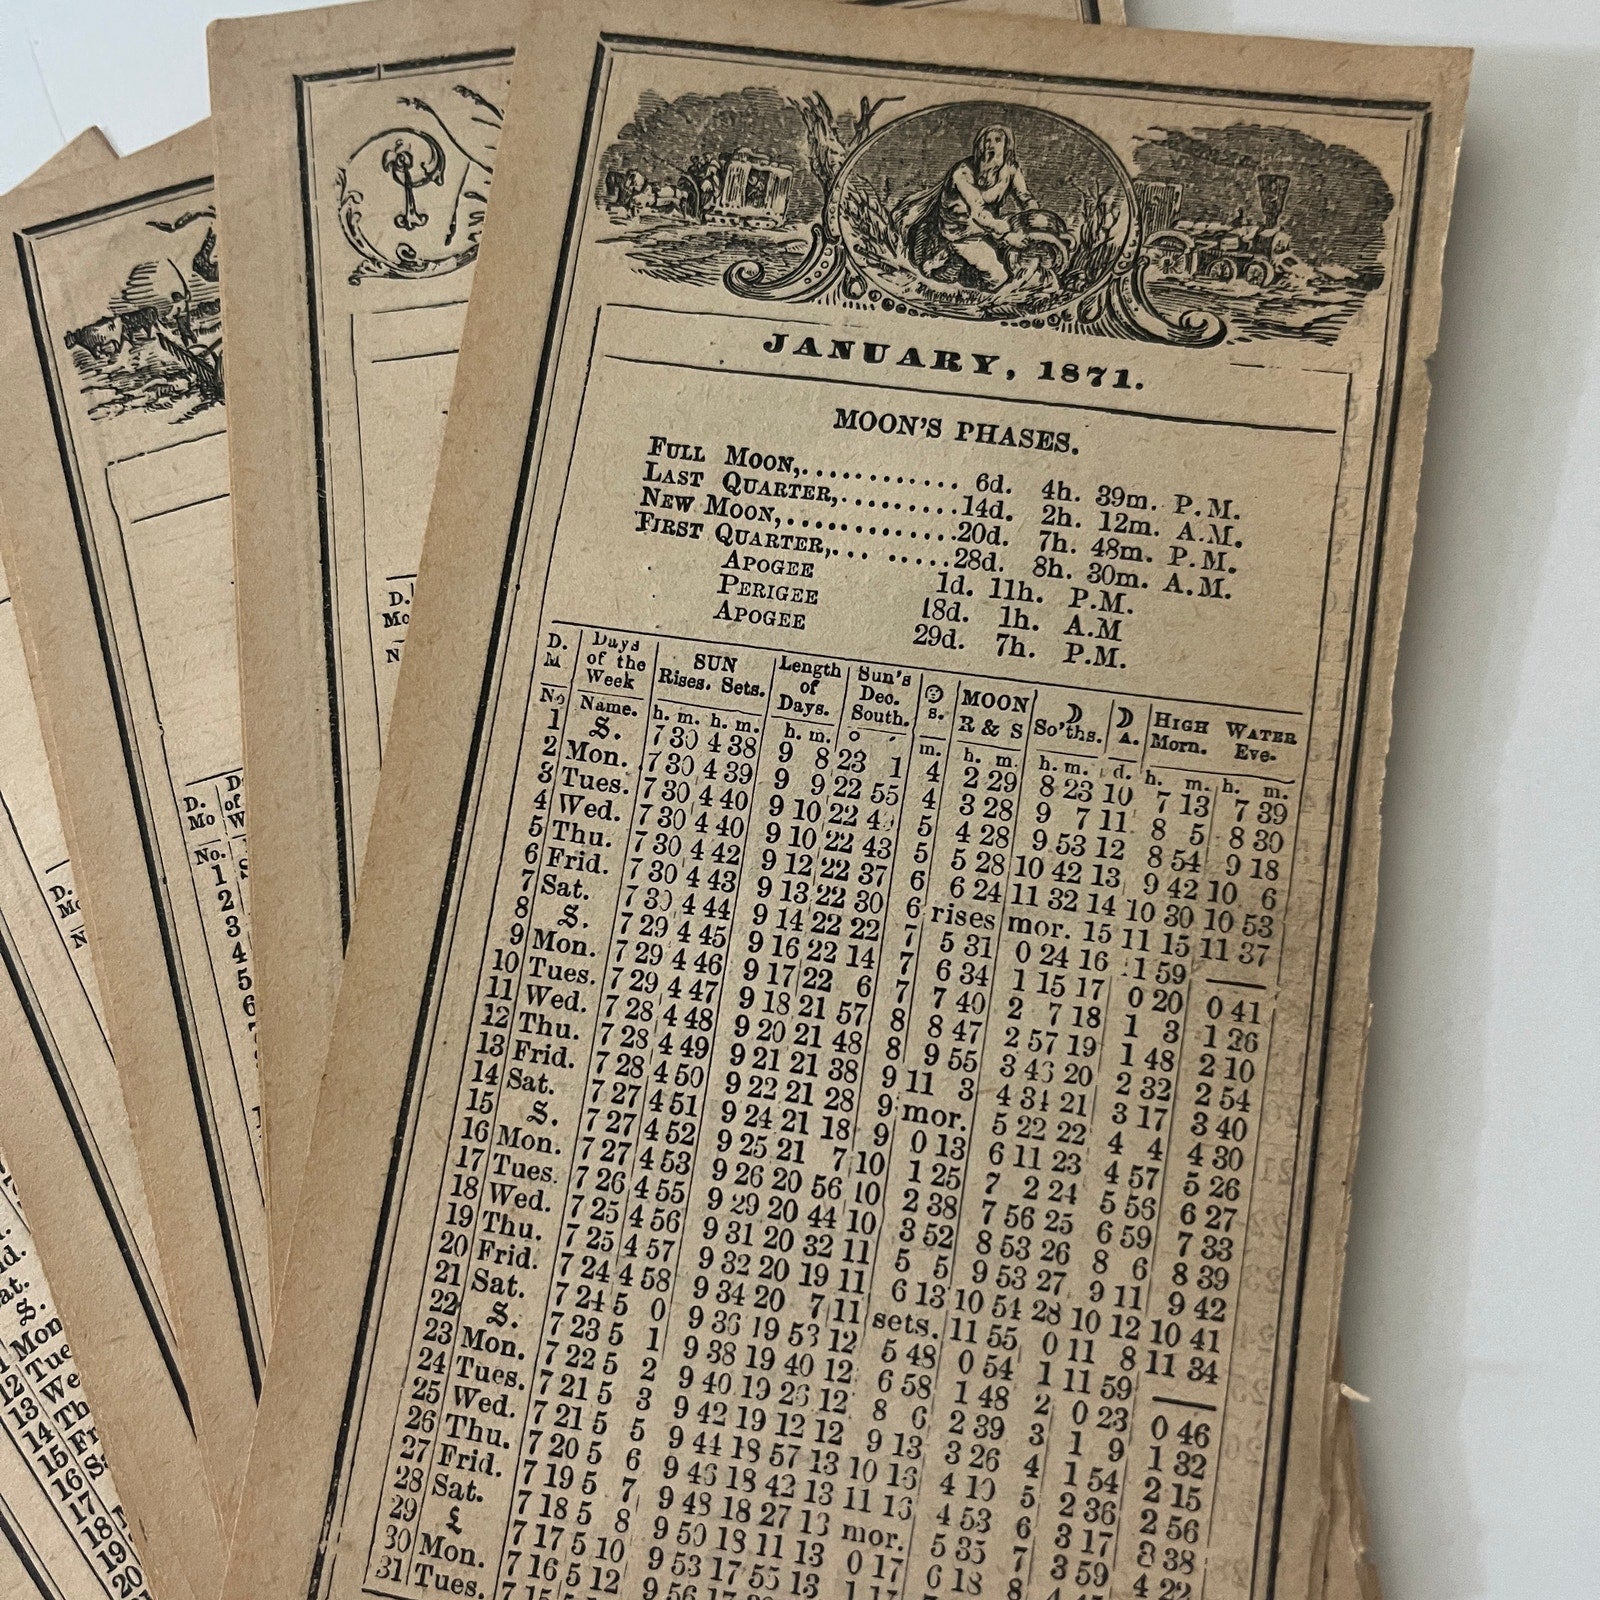 JANUARY, 1871.
MOON'S PHASES.
FULL MOON,............ 6d. 4h. 39m. P.M.
LAST QUARTER,.........14d. 2h. 12m. A.M.
NEW MOON,.............20d. 7h. 48m. P.M.
FIRST QUARTER,... .....28d. 8h. 30m. A.M.
APOGEE 1d. 11h. P.M.
PERIGEE 18d. 1h. A.M
APOGEE 29d. 7h. P.M.
D. M Days of the Week SUN Rises. Sets. Length of Days. Sun's Dec. South. s. MOON R & S So'ths. A. HIGH WATER Morn. Eve-
No Name. h. m. h. m. h. m. o ' m. h. m. h. m. d. h. m. h. m.
1 S. 7 30 4 38 9 8 23 1 4 2 29 8 23 10 7 13 7 39
2 Mon. 7 30 4 39 9 9 22 55 4 3 28 9 7 11 8 5 8 30
3 Tues. 7 30 4 40 9 10 22 5 4 28 9 53 12 8 54 9 18
4 Wed. 7 30 4 40 9 10 22 43 5 5 28 10 42 13 9 42 10 6
5 Thu. 7 30 4 42 9 12 22 37 6 6 24 11 32 14 10 30 10 53
6 Frid. 7 30 4 43 9 13 22 30 6 rises mor. 15 11 15 11 37
7 Sat. 7 30 4 44 9 14 22 22 7 5 31 0 24 16 59
8 S. 7 29 4 45 9 16 22 14 7 6 34 1 15 17 0 20 0 41
9 Mon. 7 29 4 46 9 17 22 6 7 7 40 2 7 18 1 3 1 26
10 Tues. 7 29 4 47 9 18 21 57 8 8 47 2 57 19 1 48 2 10
11 Wed. 7 28 4 48 9 20 21 48 8 9 55 3 20 2 32 2 54
12 Thu. 7 28 4 49 9 21 21 38 9 11 3 4 34 21 3 17 3 40
13 Frid. 7 28 4 50 9 22 21 28 9 mor. 5 22 22 4 4 4 30
14 Sat. 7 27 4 51 9 24 21 18 9 0 13 6 11 23 4 57 5 26
15 S. 7 27 4 52 9 25 21 7 10 1 25 7 2 24 5 56 6 27
16 Mon. 7 27 4 53 9 26 20 56 10 2 38 7 56 25 6 59 7 33
17 Tues. 7 26 4 55 9 29 20 44 10 3 52 8 53 26 8 6 8 39
18 Wed. 7 25 4 56 9 31 20 32 11 5 5 9 53 27 9 11 9 42
19 Thu. 7 25 4 57 9 32 20 19 11 6 13 10 54 28 10 12 10 41
20 Frid. 7 24 4 58 9 34 20 7 11 sets. 11 55 0 11 8 11 34
21 Sat. 7 24 5 0 9 36 19 53 12 5 48 0 54 1 11 59
22 S. 7 23 5 1 9 38 19 40 12 6 58 1 48 2 0 23 0 46
23 Mon. 7 22 5 2 9 40 19 26 12 8 6 2 39 3 1 9 1 32
24 Tues. 7 21 5 3 9 42 19 12 12 9 13 3 26 4 1 54 2 15
25 Wed. 7 21 5 5 9 44 18 57 13 10 16 4 10 5 2 36 2 56
26 Thu. 7 20 5 6 9 46 18 42 13 11 16 4 53 6 3 17 3 38
27 Frid. 7 19 5 7 9 48 18 27 13 mor. 5 35 7 3 59 4 22
28 Sat. 7 18 5 8 9 50 18 11 13 0 17 6 18 8
29 7 17 5 10 9 53 17 55 13
30 Mon. 7 16 5 12 9 56
31 Tues. 7 15
D.
Mo
N
D.
Mo
No.
1
2
3
4
5
6
D
of
W
D.
Mon
Tue
We
Th
12
13
14
15
16
17
18
19
20